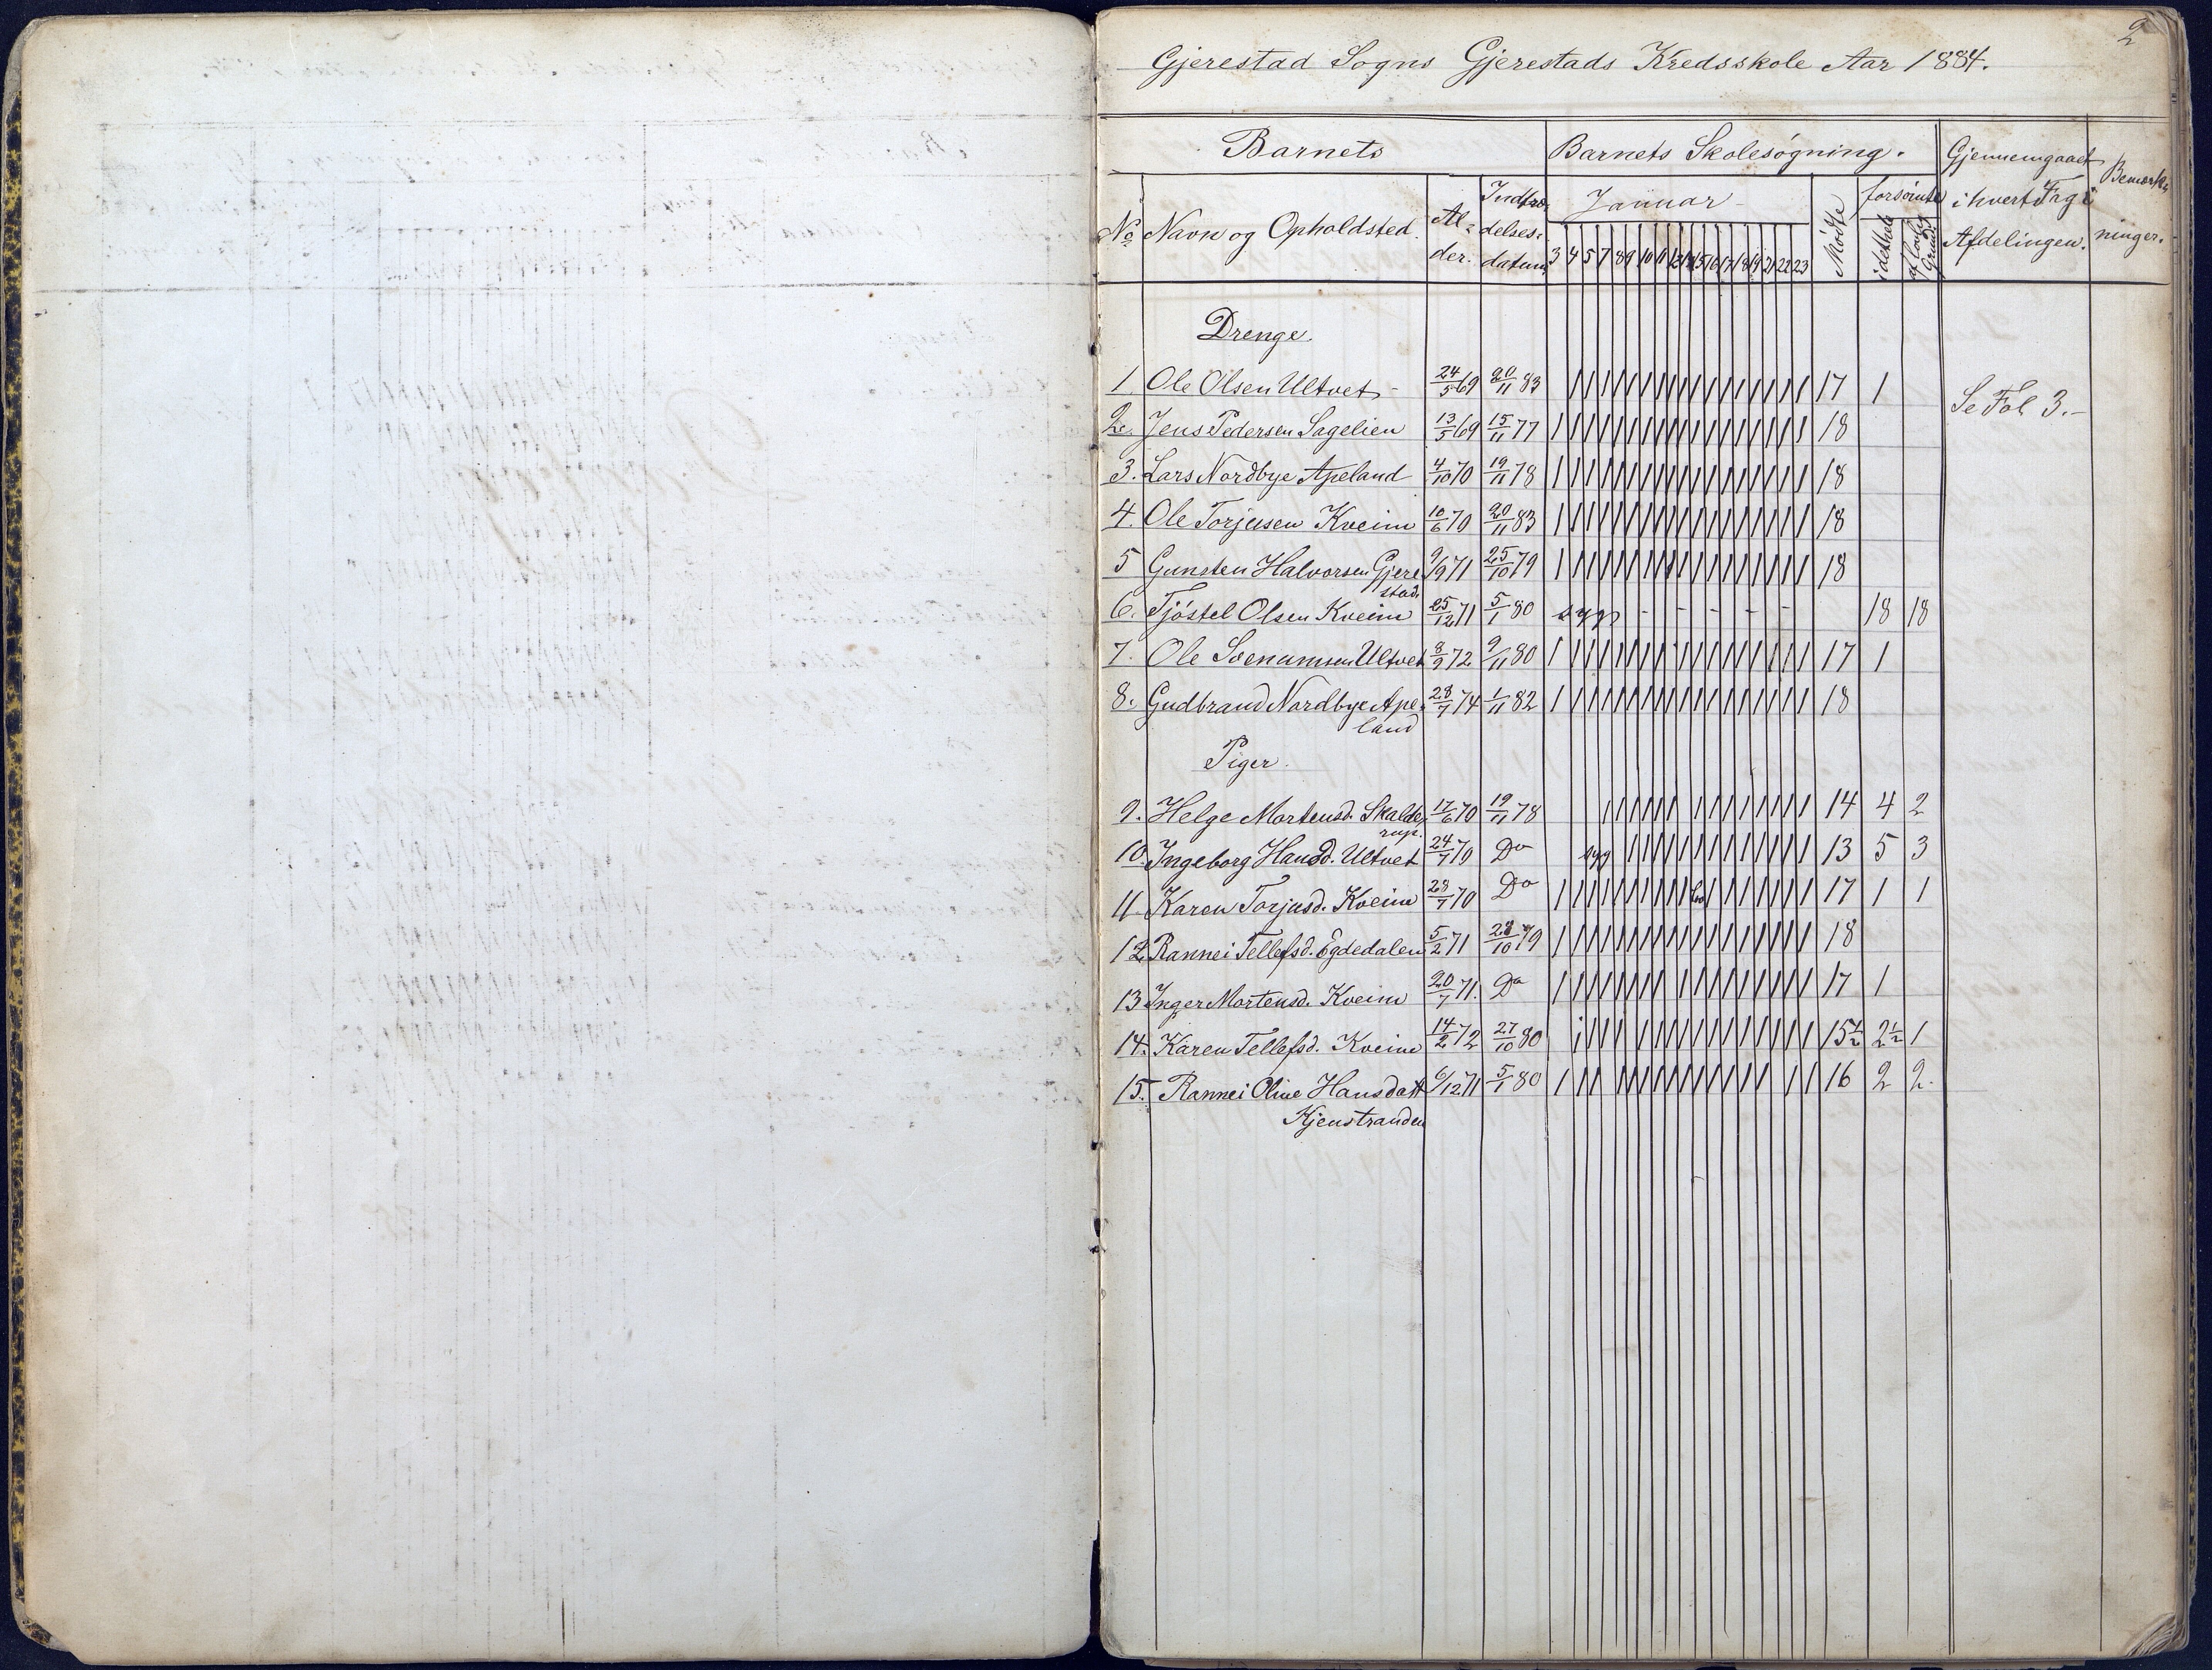 2
Gjerestad Sogns Gjerestads Kredsskole Aar 1884.
Barnets Barnets Skolesøgning. Gjennemgaaet i hvert Fag i Afdelingen. Bemærkninger.
No Navn og Opholdsted. Alder. Indtrædelsesdatum. Januar Mødte forsømte
3 4 5 7 8 9 10 11 12 14 15 16 17 18 19 21 22 23 i dethele af lovlig Grund
Drenge.
1 Ole Olsen Ultvet 24/5 69 20/11 83 17 1 Se Fol 3.-
2. Jens Pedersen Sagelien 13/5 69 15/11 77 18
3. Lars Nordbye Apeland 4/10 70 19/11 78 18
4. Ole Torjusen Kveim 10/6 70 20/11 83 18
5 Gunsten Halvorsen Gjerestad. 9/9 71 25/10 79 18
6. Tjøstel Olsen Kveim 25/12 71 5/1 80 syg - - - - - 18 18
7. Ole Svenumsen Ultvet 8/9 72 9/11 80 17 1
8. Gudbrand Nordbye Apeland 28/7 74 1/11 82 18
Piger.
9. Helge Mortensd. Skalderup. 17/6 70 19/11 78 14 4 2
10. Ingeborg Hansd. Ultvet 24/7 70 Do syg 13 5 3
11. Karen Torjusd. Kveim 28/7 70 Do 17 1 1
12. Rannei Tellefsd. Egdedalen 5/2 71 28/10 79 18
13 Inger Mortensd. Kveim 20/7 71. Do 17 1
14. Karen Tellefsd. Kveim 14/2 72 27/10 80 15½ 2½ 1
15. Rannei Oline Hansdatt 6/12 71 5/1 80 16 2 2.
Kjenstranden